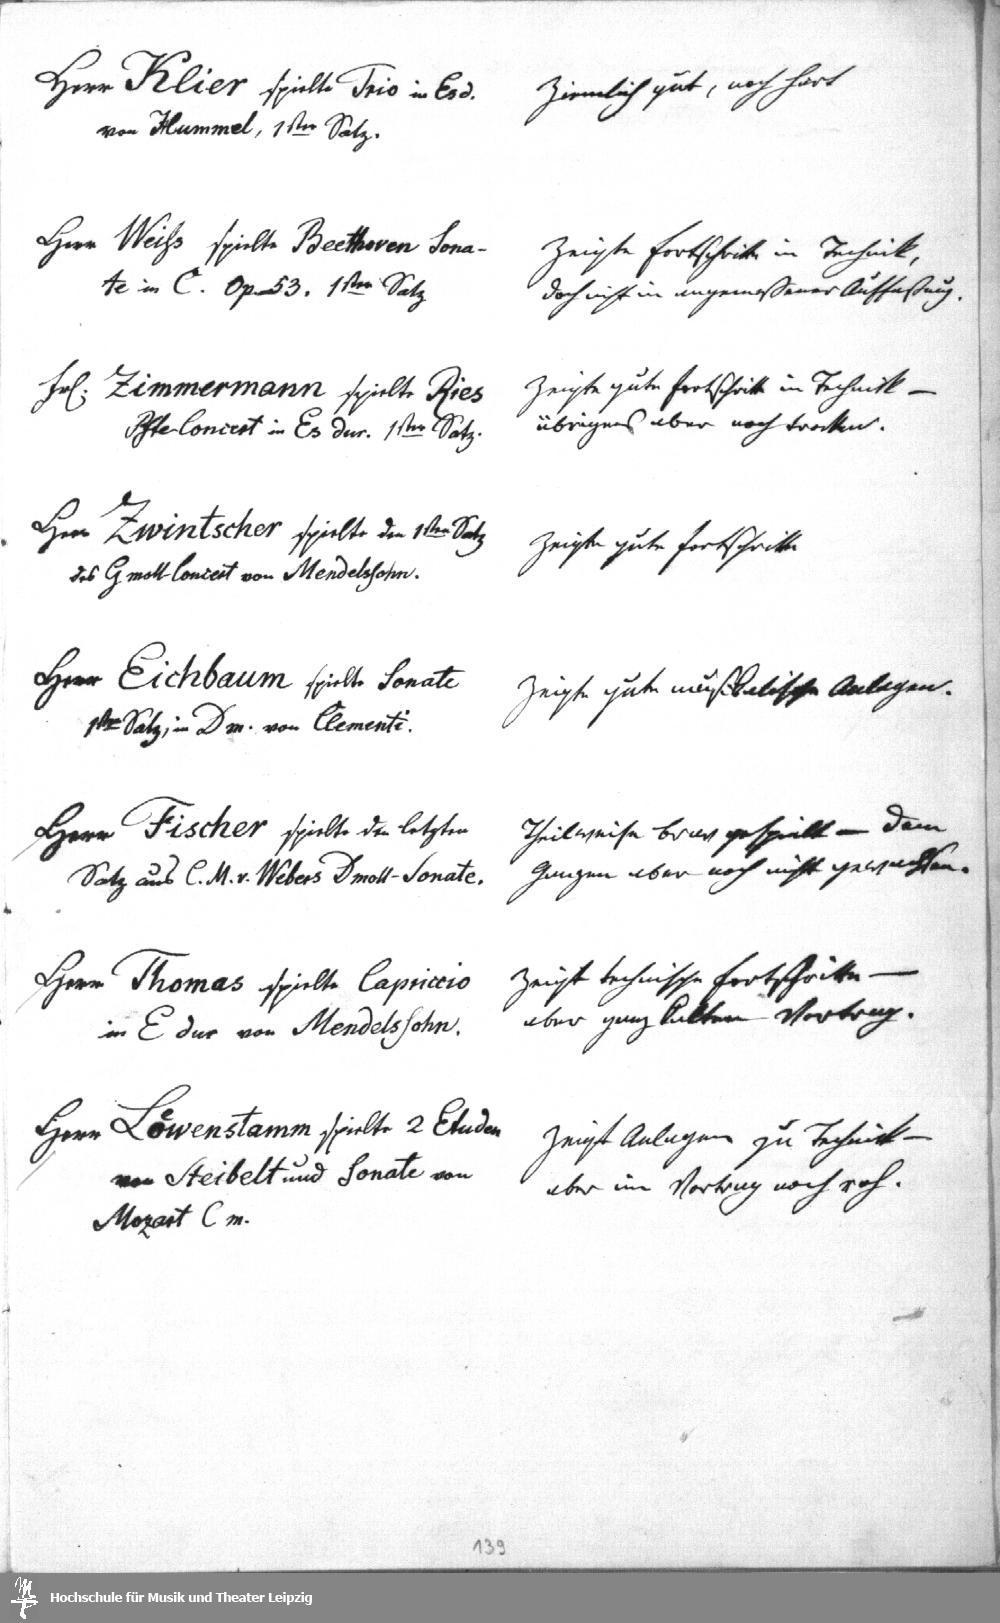 Herr Klier spielte Trio in Esd.
von Hummel, 1ster Satz.
Ziemlich gut, noch hart
Herr Weiss spielte Beethoven Sona-
te in C. Op. 53. 1ster Satz
Zeigte Fortschritte in Technik,
doch nicht in angemessener Auffassung.
Frl. Zimmermann spielte Ries
Pfte-Concert in Es dur. 1ster Satz.
Zeigte gute Fortschritte in Technik —
übrigens aber noch trocken.
Herr Zwintscher spielte den 1sten Satz
des G moll-Concert von Mendelssohn.
Zeigte gute Fortschritte
Herr Eichbaum spielte Sonate
1ster Satz, in D m. von Clementi.
Zeigte gute musikalische Anlagen.
Herr Fischer spielte den letzten
Satz aus C. M. v. Webers D moll-Sonate.
Theilweise brav gespielt — dem
Ganzen aber noch nicht gewachsen.
Herr Thomas spielte Capriccio
in E dur von Mendelssohn.
Zeigt technische Fortschritte —
aber ganz kalten Vortrag.
Herr Löwenstamm spielte 2 Etuden
von Steibelt und Sonate von
Mozart C m.
Zeigt Anlagen zu Technik —
aber im Vortrag noch roh.
139
Hochschule für Musik und Theater Leipzig